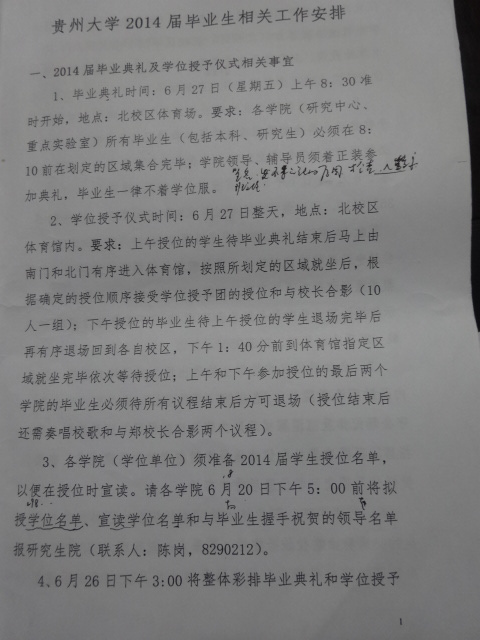 贵州大学 2014 届毕业生相关工作安排
一、2014 届毕业典礼及学位授予仪式相关事宜
1、毕业典礼时间：6 月 27 日（星期五）上午 8：30 准
时开始，地点：北校区体育场。要求：各学院（研究中心、
重点实验室）所有毕业生（包括本科、研究生）必须在 8：
10 前在划定的区域集合完毕；学院领导、辅导员须着正装参
加典礼，毕业生一律不着学位服。
2、学位授予仪式时间：6 月 27 日整天，地点：北校区
体育馆内。要求：上午授位的学生待毕业典礼结束后马上由
南门和北门有序进入体育馆，按照所划定的区域就坐后，根
据确定的授位顺序接受学位授予团的授位和与校长合影（10
人一组）；下午授位的毕业生待上午授位的学生退场完毕后
再有序退场回到各自校区，下午 1：40 分前到体育馆指定区
域就坐完毕依次等待授位；上午和下午参加授位的最后两个
学院的毕业生必须待所有议程结束后方可退场（授位结束后
还需奏唱校歌和与郑校长合影两个议程）。
3、各学院（学位单位）须准备 2014 届学生授位名单，
以便在授位时宣读。请各学院 6 月 20 日下午 5：00 前将拟
授学位名单、宣读学位名单和与毕业生握手祝贺的领导名单
报研究生院（联系人：陈岗，8290212）。
4、6 月 26 日下午 3:00 将整体彩排毕业典礼和学位授予
1